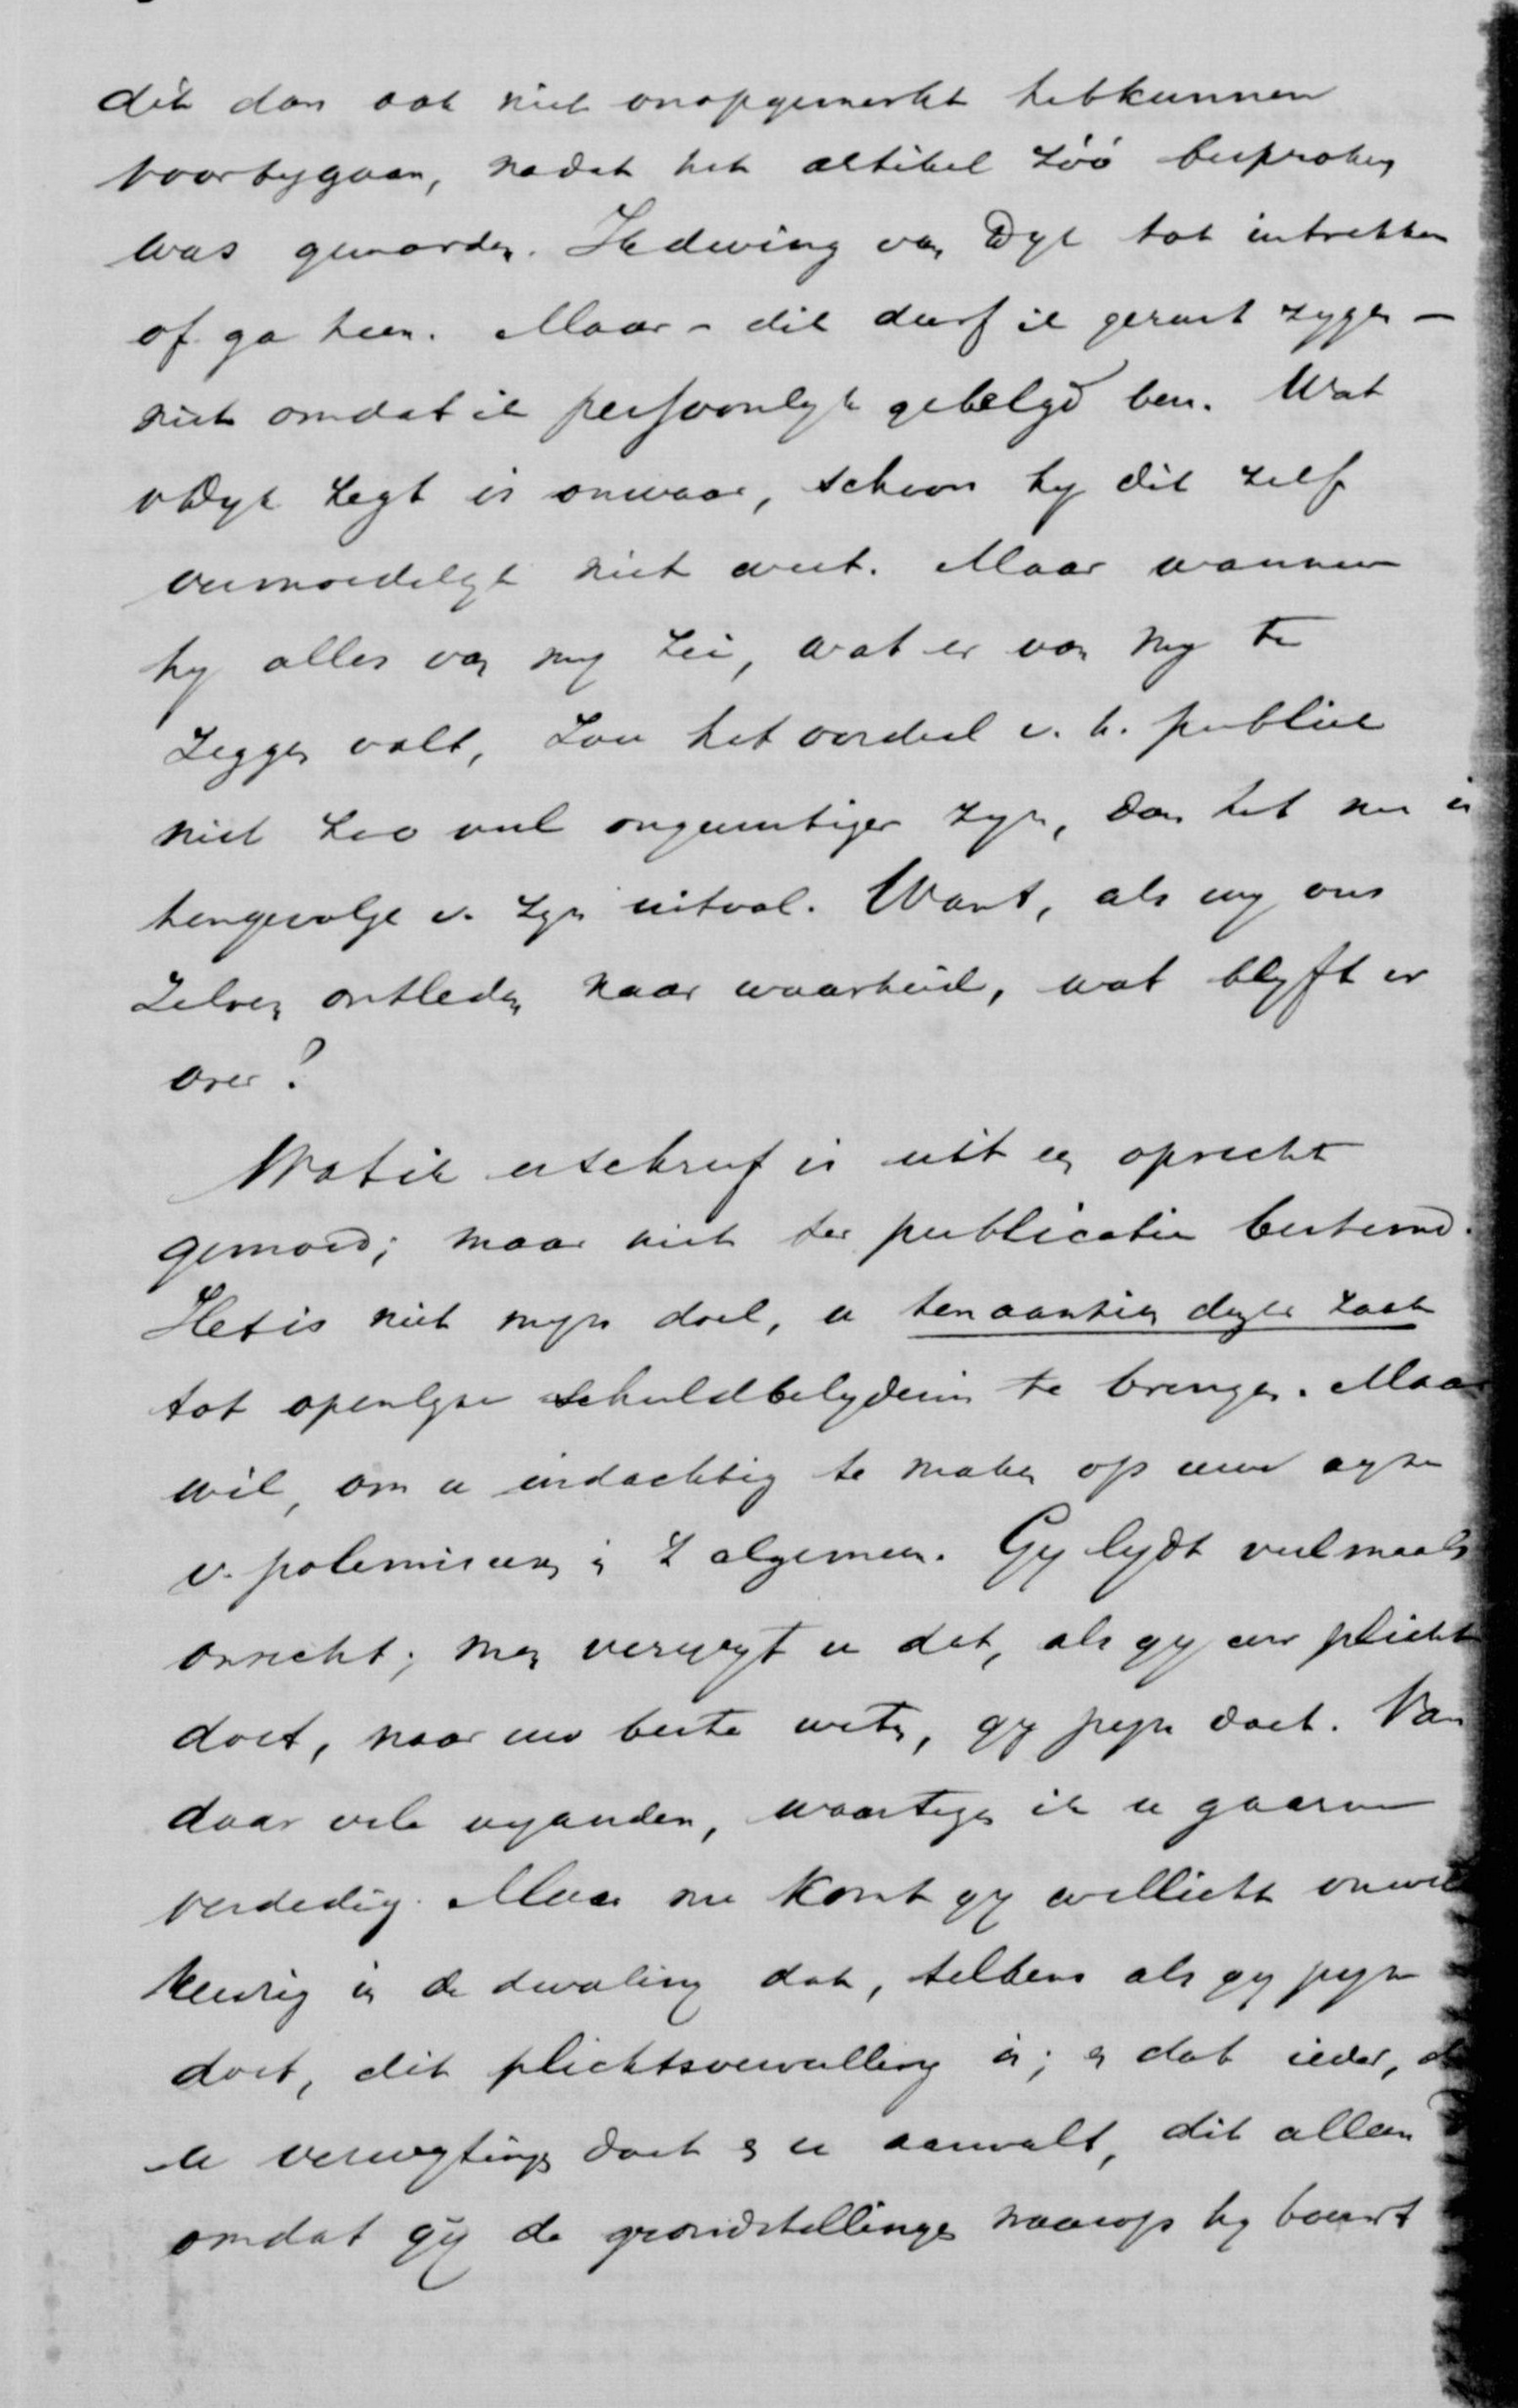 dit dan ook niet onopgemerkt heb kunnen
voorbygaan, nadat het artikel zóó besproken
was geworden. Ik dwing van Dyk tot intrekken
of ga heen. Maar – dit durf ik gerust zeggen –
niet omdat ik persoonlyk gebelgd ben. Wat
v Dyk zegt is onwaar, schoon hy dit zelf
vermoedelyk niet weet. Maar wanneer
hy alles van my zei, wat er van my te
zeggen valt, zou het oordeel v. h. publiek
niet zoo veel ongunstiger zyn, dan het nu is
tengevolge v. zyn uitval. Want, als wy ons
zelven ontleden naar waarheid, wat blyft er
over?
Wat ik u schreef is uit een oprecht
gemoed; maar niet ter publicatie bestemd.
Het is niet myn doel, u ten aanzien dezer zaak
tot openlyke schuldbelydenis te brengen. Maar
wil, om u indachtig te maken op uw wyze
v. polemiseeren in 't algemeen. Gy lydt veelmaals
onrecht; men verwyt u dat, als gy uw plicht
doet, naar uw beste weten, gy pyn doet. Van
daar vele vyanden, waartegen ik u gaarne
verdedig. Maar nu komt gy wellicht onwil
keurig in de dwaling dat, telkens als gy pyn
doet, dit plichtsvervulling is; en dat ieder, d
u verwytingen doet en u aanvalt, dit alleen
omdat gy de grondstellingen waarop hy bouwt